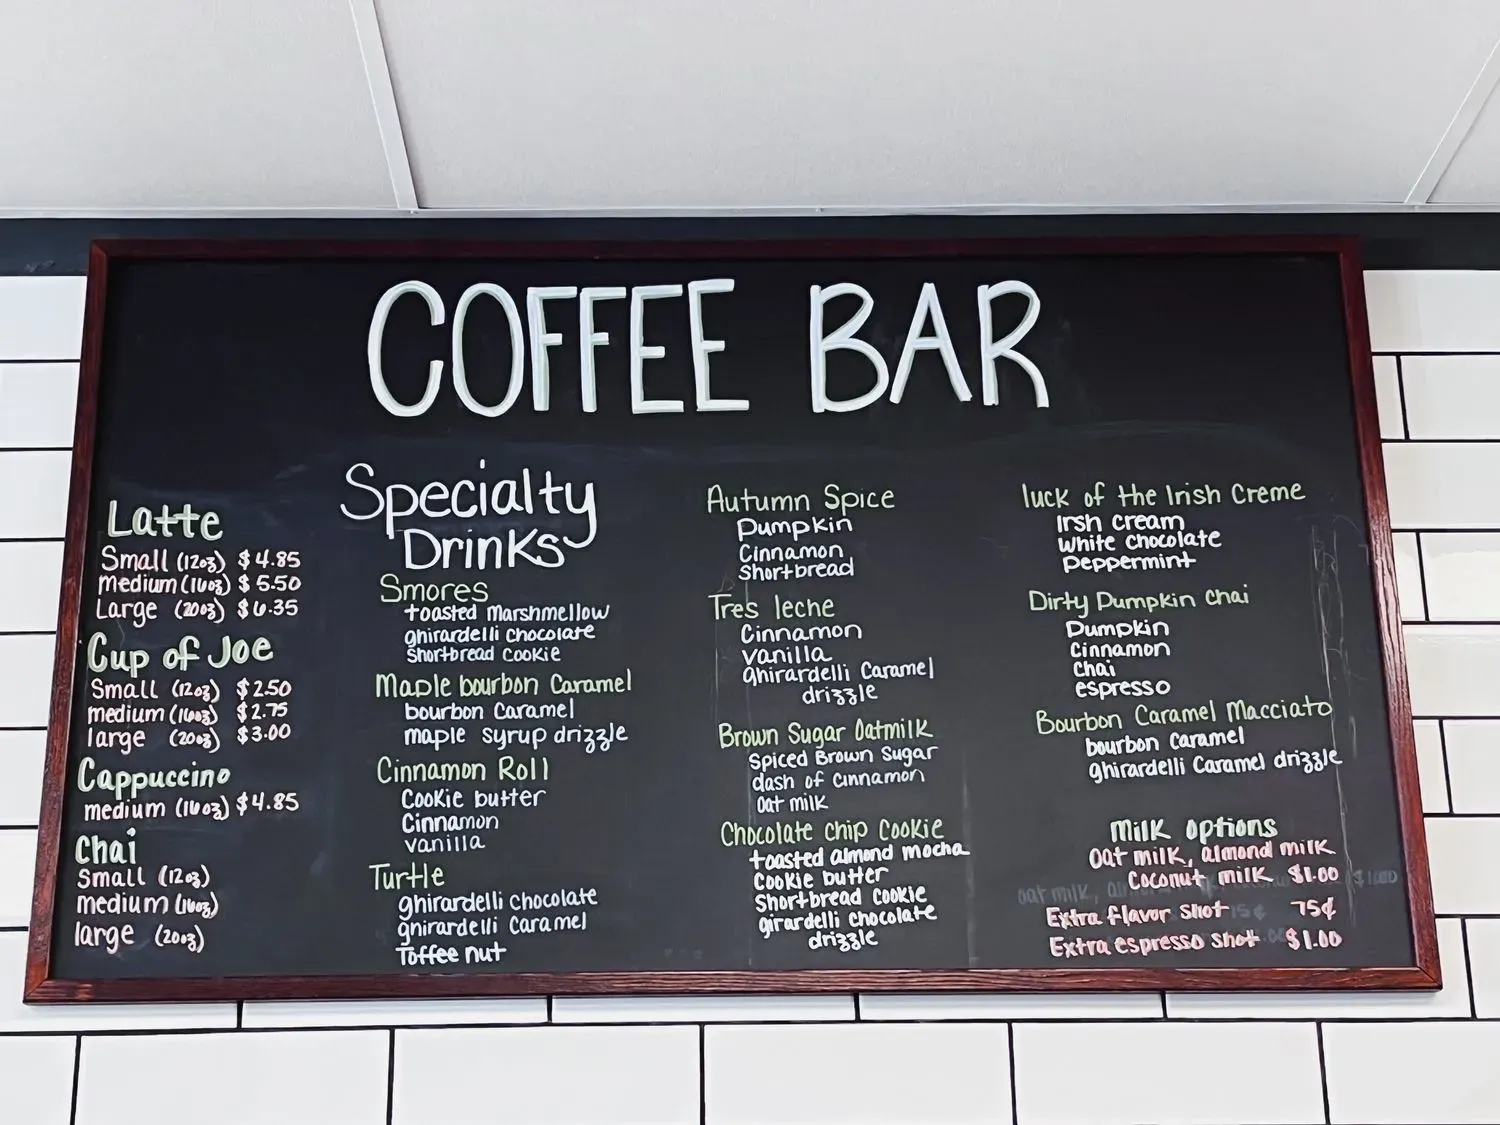 COFFEE BAR
Latte
Small (12oz) $4.85
medium (16oz) $5.50
Large (20oz) $6.35
Cup of Joe
Small (12oz) $2.50
medium (16oz) $2.75
large (20oz) $3.00
Cappuccino
medium (16oz) $4.85
Chai
Small (12oz)
medium (16oz)
large (20oz)
Specialty
Drinks
Smores
toasted Marshmellow
ghirardelli chocolate
Shortbread Cookie
Maple bourbon Caramel
bourbon Caramel
maple syrup drizzle
Cinnamon Roll
Cookie butter
Cinnamon
vanilla
Turtle
ghirardelli chocolate
ghirardelli Caramel
Toffee nut
Autumn Spice
Pumpkin
Cinnamon
Shortbread
Tres leche
Cinnamon
vanilla
ghirardelli Caramel
drizzle
Brown Sugar Oatmilk
Spiced Brown Sugar
dash of Cinnamon
Oat milk
Chocolate chip Cookie
toasted almond mocha
Cookie butter
Shortbread Cookie
girardelli chocolate
drizzle
luck of the Irish Creme
Irsh cream
white chocolate
Peppermint
Dirty Pumpkin chai
Pumpkin
Cinnamon
Chai
espresso
Bourbon Caramel Macciato
bourbon Caramel
ghirardelli Caramel drizzle
milk options
Oat milk, almond milk
Coconut milk $1.00
Extra flavor shot 75¢
Extra espresso shot $1.00